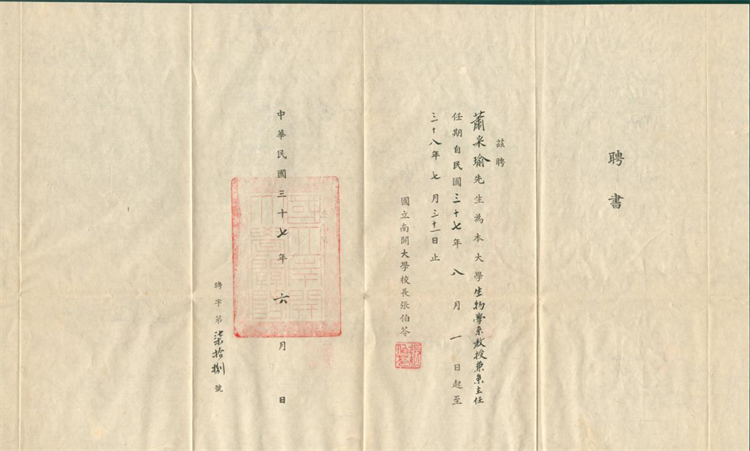 聘書
茲聘
蕭采瑜先生為本大學生物學系教授兼系主任
任期自民國三十七年八月一日起至
三十八年七月三十一日止
國立南開大學校長張伯苓
中華民國三十七年六月日
聘字第柒拾捌號